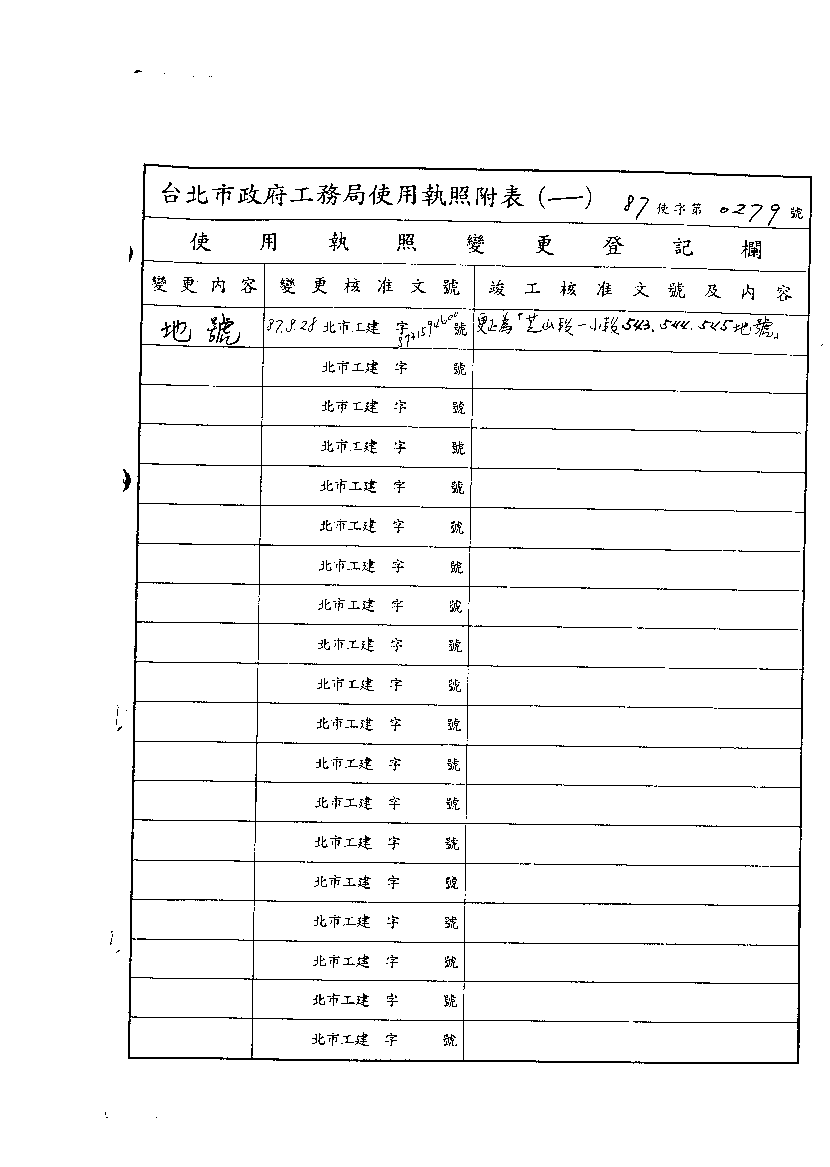 台北市政府工務局使用執照附表（一） 87使字第0279號
使用執照變更登記欄
變更內容 變更核准文號 竣工核准文號及內容
地號 87.8.28北市工建 字8731594600號 更正為「芝山段一小段543.544.545地號」
北市工建 字 號
北市工建 字 號
北市工建 字 號
北市工建 字 號
北市工建 字 號
北市工建 字 號
北市工建 字 號
北市工建 字 號
北市工建 字 號
北市工建 字 號
北市工建 字 號
北市工建 字 號
北市工建 字 號
北市工建 字 號
北市工建 字 號
北市工建 字 號
北市工建 字 號
北市工建 字 號